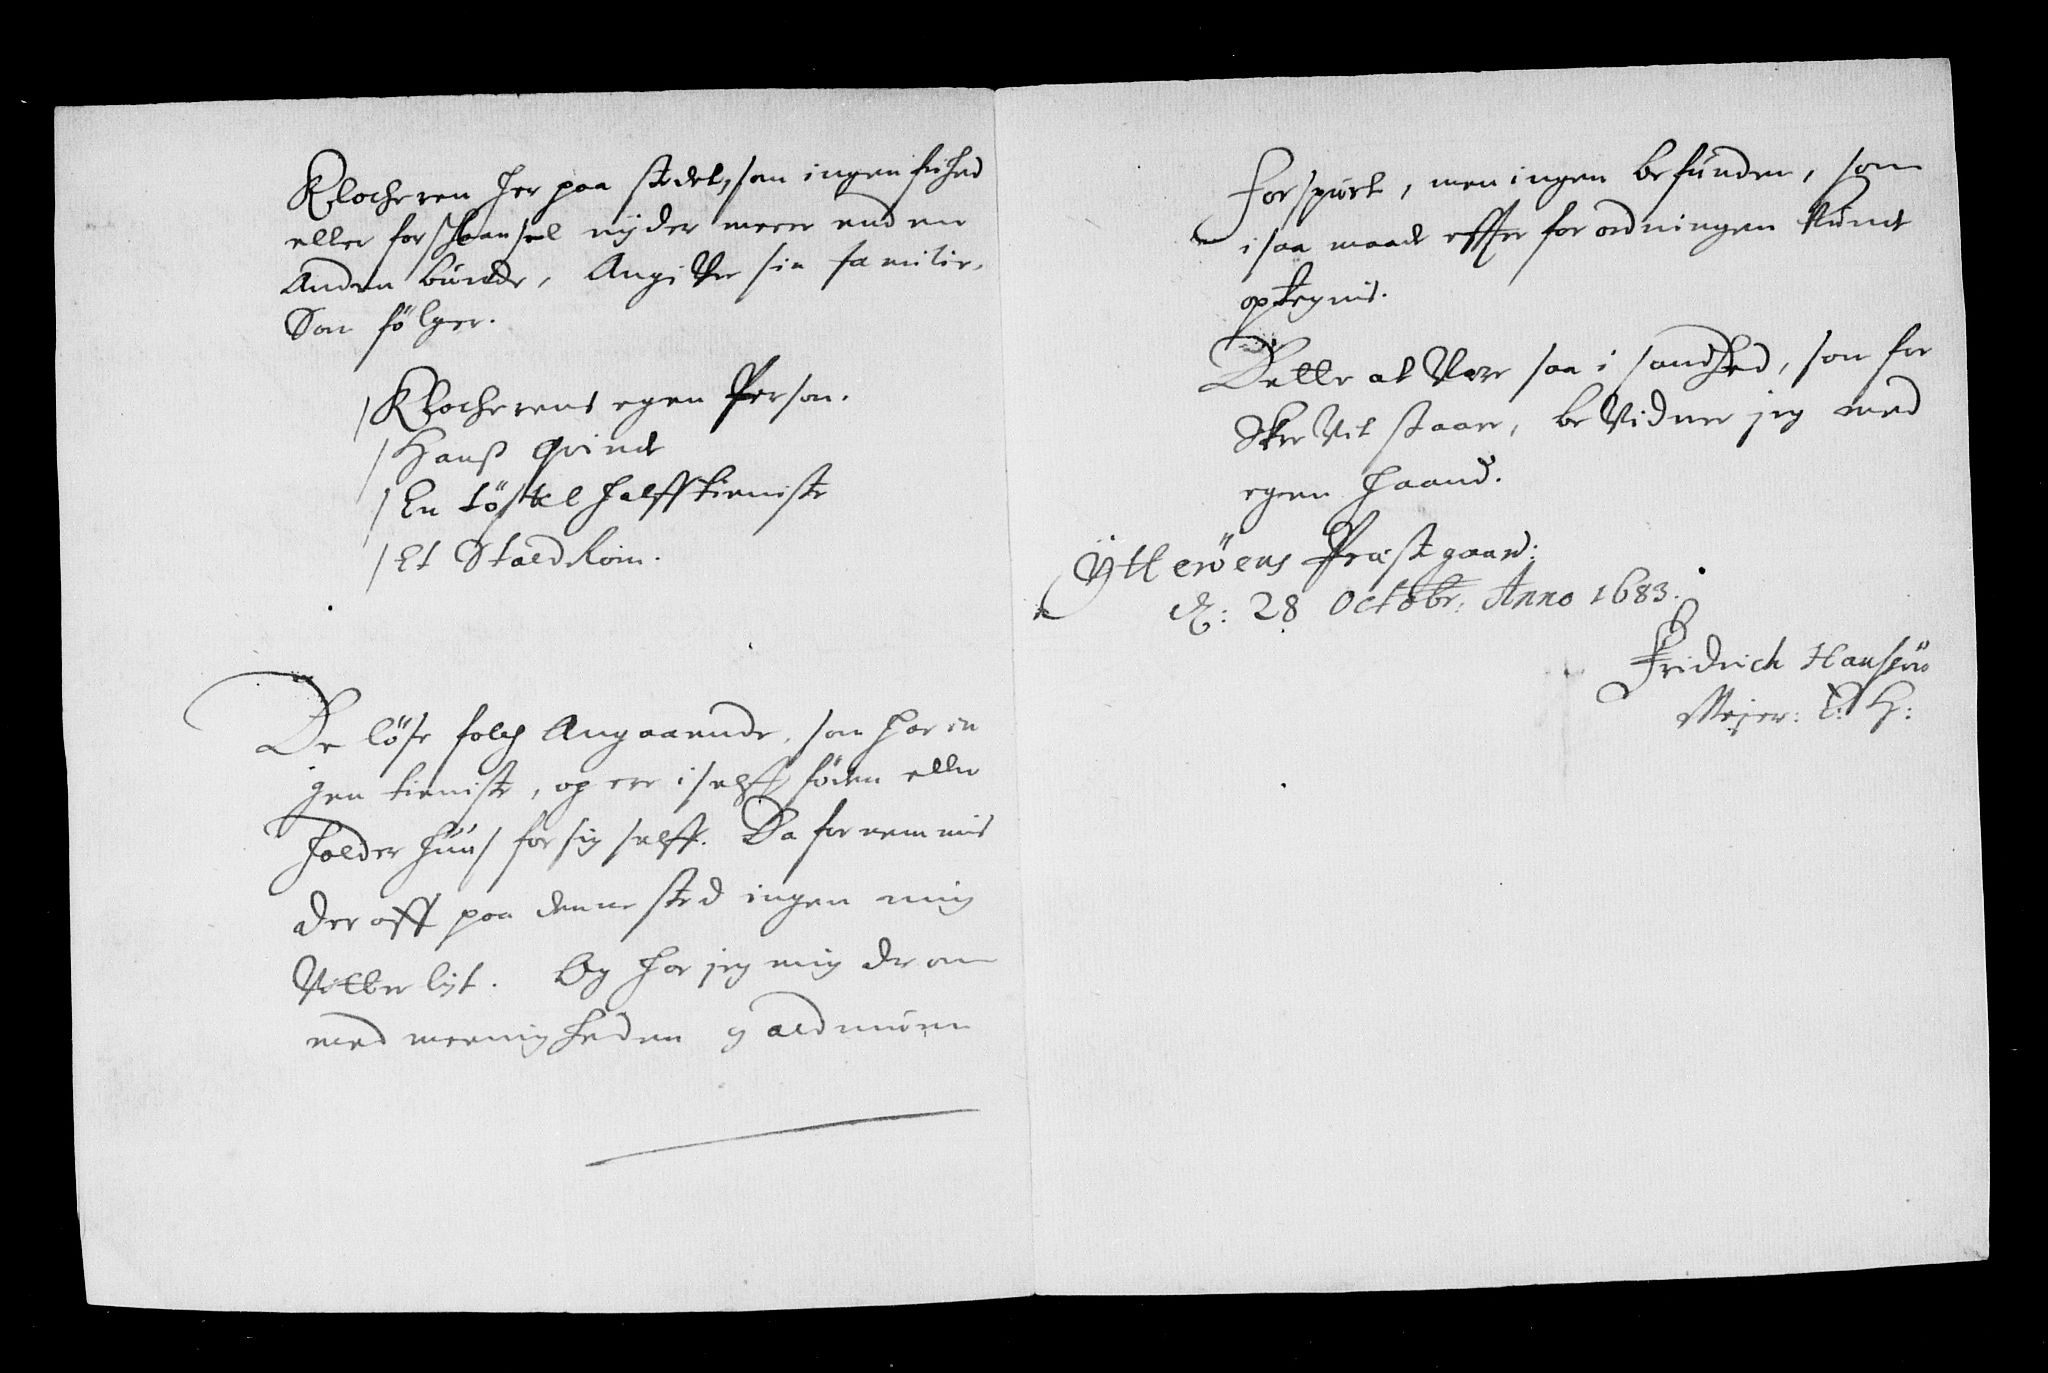 Klocheren her paa stedet, som ingen friihed
eller forschaansel nyder meere end en
Anden bunde, Angifver sin familie,
Som følger.
/ Klocherens egen Person.
/ Hanß Qvinde
/ En løstel halfftieniste
/ Et Staldkoin.
De løse folch Angaaende, som har in
gen tieniste, og ere i selff føden eller
holder huus for sig selff. Da fornemmis
der aff paa denne sted ingen mig
Vitterligt. Og har jeg mig der om
med meenigheden g aldmuen
forspurt, men ingen befunden, som
i saa maade effter forordningen kunde
optegnis.
Dette at Være saa i sandhed, som for
Skrevit staar, be Vidner jeg med
egen haand.
Ÿtterøens Præstgaard:
d: 28 Octobr: Anno 1683.
Fridrich Hansøn
Meier: